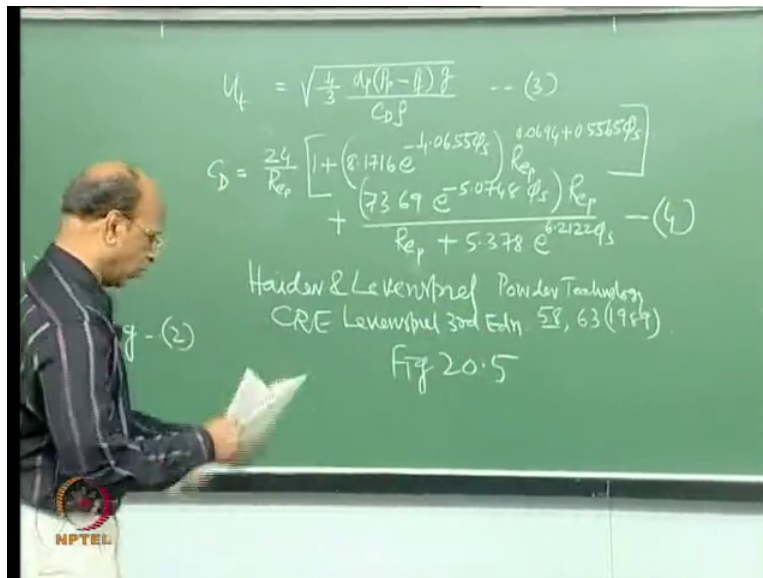 U_t = √(4/3 d_p(ρ_p − ρ_f) g / C_D ρ) -- (3)
C_D = 24/Re_p [1 + (8.1716 e^(−4.0655φ_s)) Re_p^(0.0694+0.5565φ_s)]
+ (73.69 e^(−5.0748 φ_s)) Re_p / (Re_p + 5.378 e^(6.2122φ_s)) — (4)
Haider & Levenspiel Powder Technology
CRE Levenspiel 3rd Edn. 58, 63 (1989)
g - (2)
Fig 20.5
NPTEL